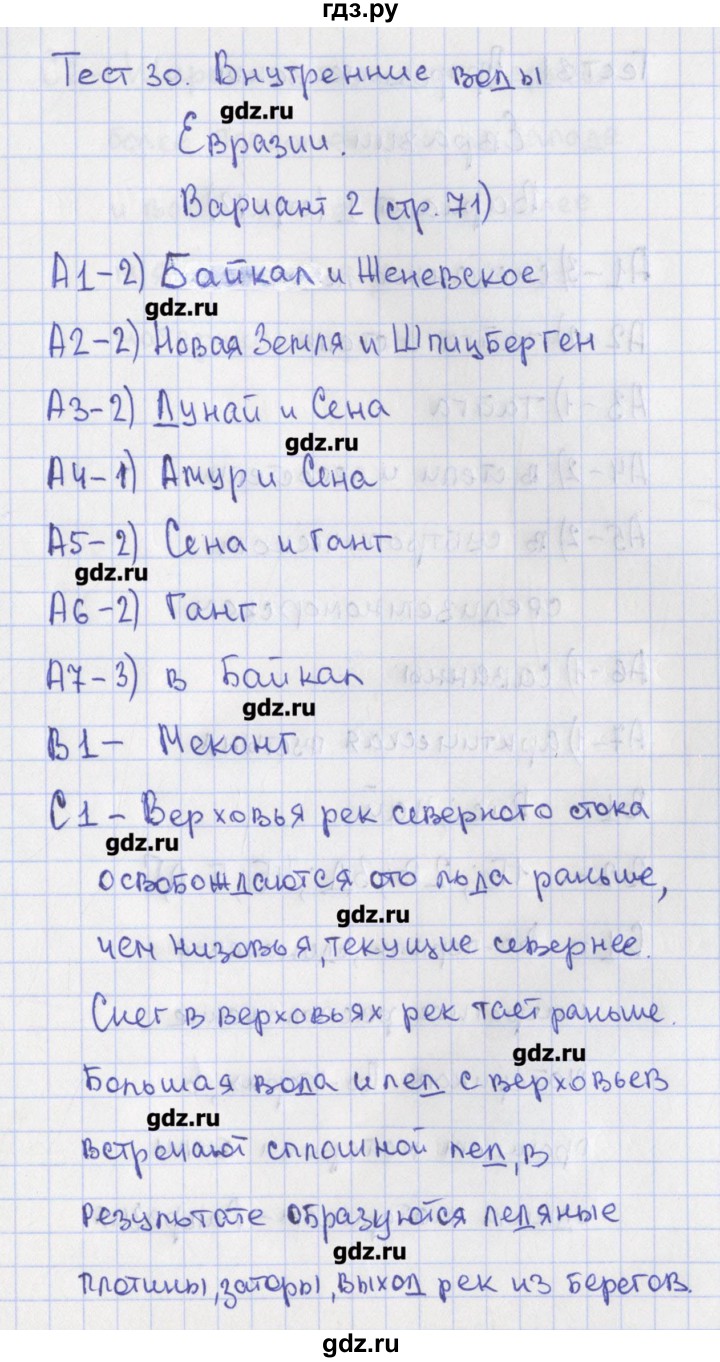 гдз.ру
Тест 30. Внутренние воды
gdz.ru
Евразии.
Вариант 2 (стр. 71)
А1-2) Байкал и Женевское
gdz.ru
А2-2) Новая Земля и Шпицберген
А3-2) Дунай и Сена
gdz.ru
А4-1) Амур и Сена
А5-2) Сена и Ганг
gdz.ru
А6-2) Ганг
А7-3) в Байкал
gdz.ru
В1- Меконг
С1- Верховья рек северного стока
gdz.ru
освобождаются ото льда раньше,
gdz.ru
чем низовья, текущие севернее.
Снег в верховьях рек тает раньше.
gdz.ru
Большая вода и лед с верховьев
gdz.ru
встречают сплошной лед, в
результате образуются ледяные
gdz.ru
плотины, заторы, выход рек из берегов.
gdz.ru